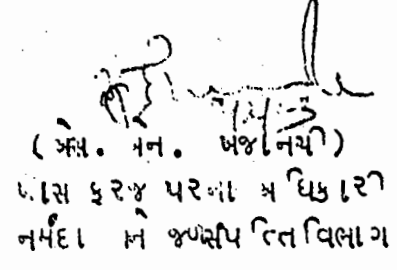 (એસ. એન. ખજાનચી)
ખાસ ફરજ પરના અધિકારી
નર્મદા અને જળસંપત્તિ વિભાગ